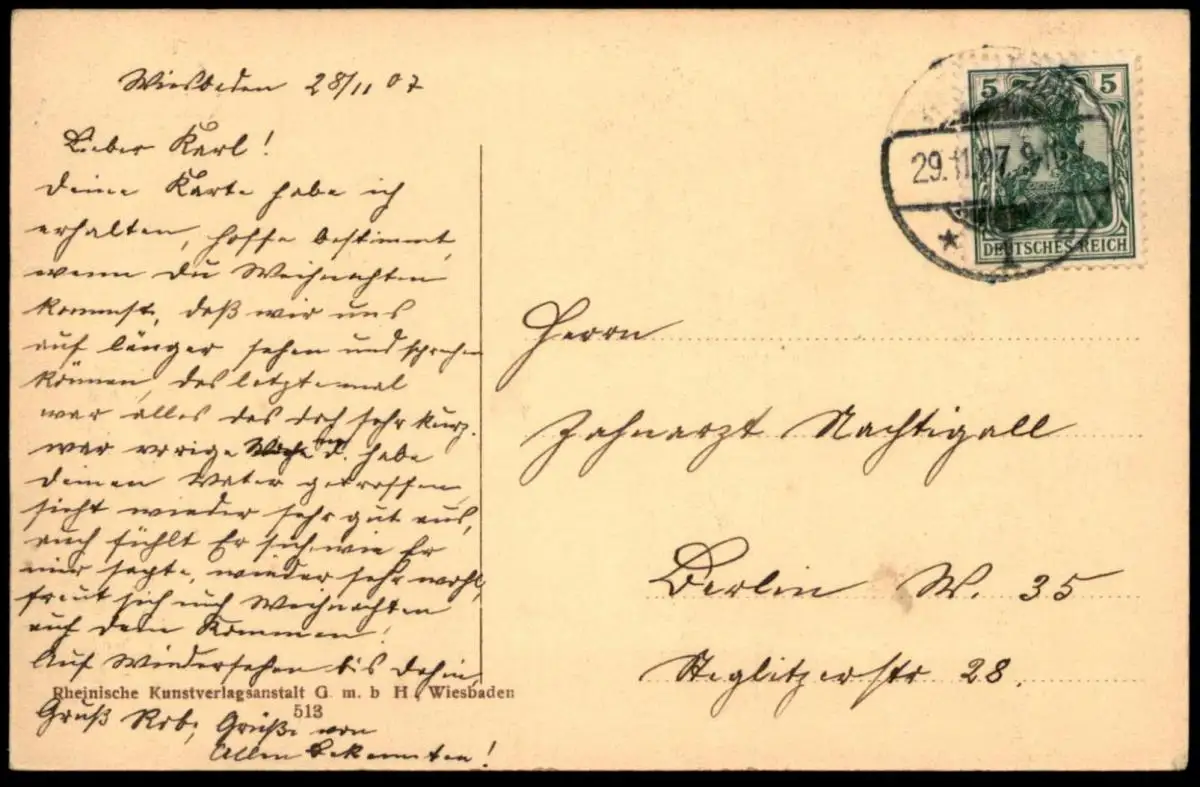 Wiesbaden 28/11 07
Lieber Karl!
Deine Karte habe ich
erhalten, hoffe bestimmt,
wenn Du Weihnachten
kommst, daß wir uns
auf länger sehen und sprechen
können, das letztemal
war alles das doch sehr kurz.
war vorige Woche in d. habe
Deinen Vater getroffen,
sieht wieder sehr gut aus,
auch fühlt Er sich, wie Er
mir sagte, wieder sehr wohl,
freut sich auch Weihnachten
auf Dein Kommen!
Auf Wiedersehen bis dahin
Rheinische Kunstverlagsanstalt G. m. b H., Wiesbaden
513
Gruß Rob, Grüße von
Allen Bekannten!
5 5
29.11.07. 9-10
DEUTSCHES REICH
Herrn
Zahnarzt Nachtigall
Berlin W. 35
Steglitzerstr 28.